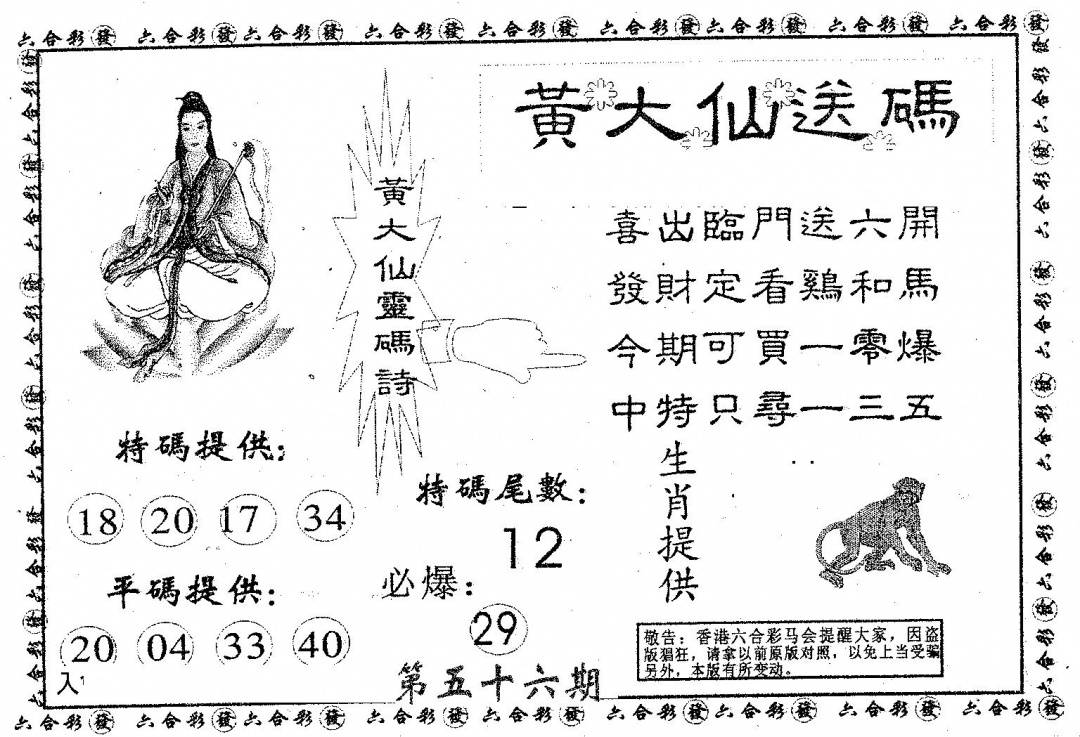 六合彩發 六合彩發六合彩發 六合彩發 六合彩發 六合彩發六合彩發 六合彩發 六合彩發
黃大仙送碼
黃大仙靈碼詩
喜出臨門送六開
發財定看鷄和馬
今期可買一零爆
中特只尋一三五
特碼提供:
18 20 17 34
特碼尾數:
12
生肖提供
平碼提供:
20 04 33 40
必爆:
29
敬告:香港六合彩马会提醒大家,因盗
版猖狂,请拿以前原版对照,以免上当受骗
另外,本版有所变动。
入1
第五十六期
六合彩發 六合彩發六合彩發 六合彩發 六合彩發 六合彩發六合彩發 六合彩發 六合彩發